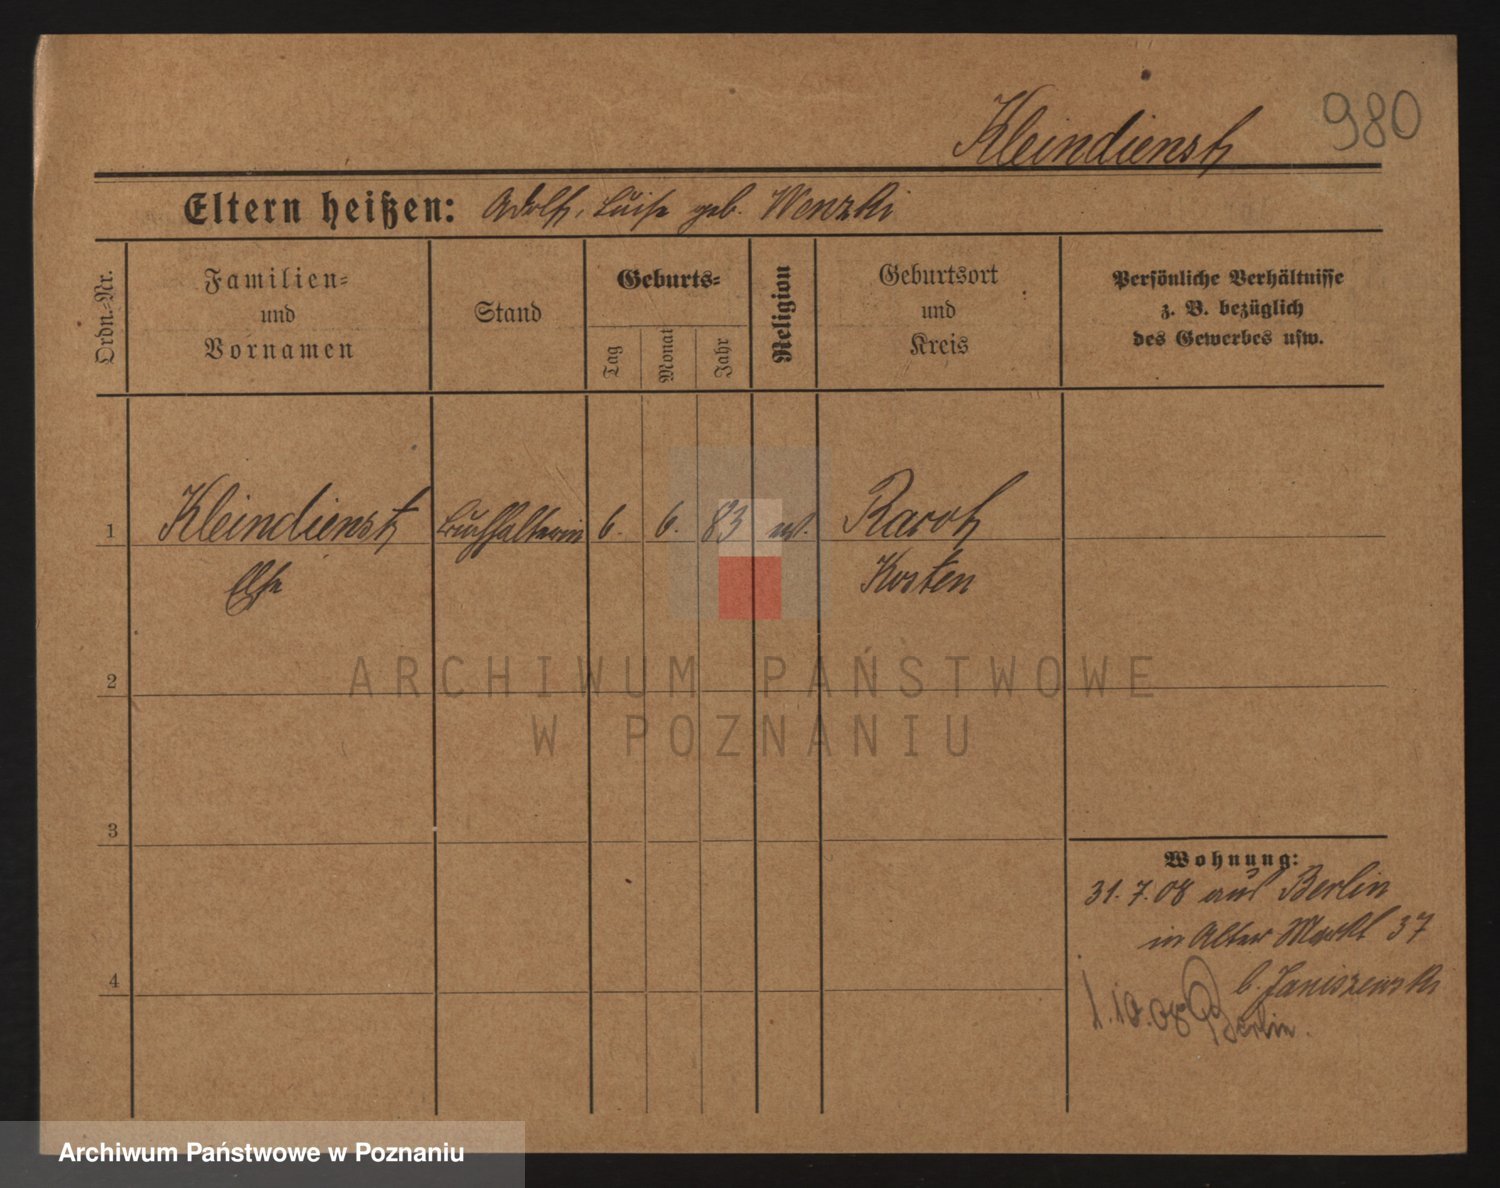 980
Kleindienst
Eltern heißen: Adolf, Luise geb. Wenzki
Ordn.-Nr.
Familien-
und
Vornamen
Stand
Geburts-
Tag
Monat
Jahr
Religion
Geburtsort
und
Kreis
Persönliche Verhältnisse
z. B. bezüglich
des Gewerbes usw.
1 Kleindienst Buchhalterin 6. 6. 83 ev. Racot
Else Kosten
2
3
4
Wohnung:
31.7.08 aus Berlin
in Alter Markt 37
b. Janiszewski
1.10.08 Berlin.
ARCHIWUM PAŃSTWOWE
W POZNANIU
Archiwum Państwowe w Poznaniu